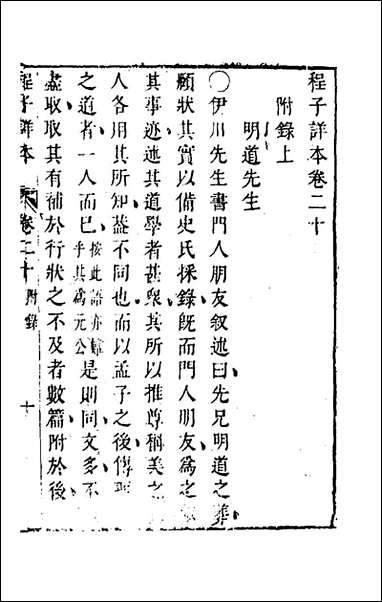 程子詳本卷二十
附錄上
明道先生
○伊川先生書門人朋友叙述曰先兄明道之葬
頤狀其實以備史氏採錄既而門人朋友爲之
其事迹述其道學者甚衆其所以推尊稱美之
人各用其所知蓋不同也而以孟子之後傳聖
之道者一人而已按此語亦乎其爲元公是則同文多不
盡取取其有補於行狀之不及者數篇附於後
程子詳本 卷二十 附錄 十